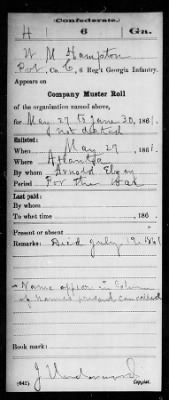 Confederate.
H 6 Ga.
W M Hampton
Pvt, Co. C, 6 Reg't Georgia Infantry.
Appears on
Company Muster Roll
of the organization named above,
for May 27 to June 30, 1861.
not dated
Enlisted:
When May 27, 1861.
Where Atlanta
By whom Arnold
Period For the War
Last paid:
By whom
To what time , 186 .
Present or absent
Remarks: Died July 19, 1861
Name appears in Column
of names present cancelled
Book mark:
(642) J Underwood
Copyist.